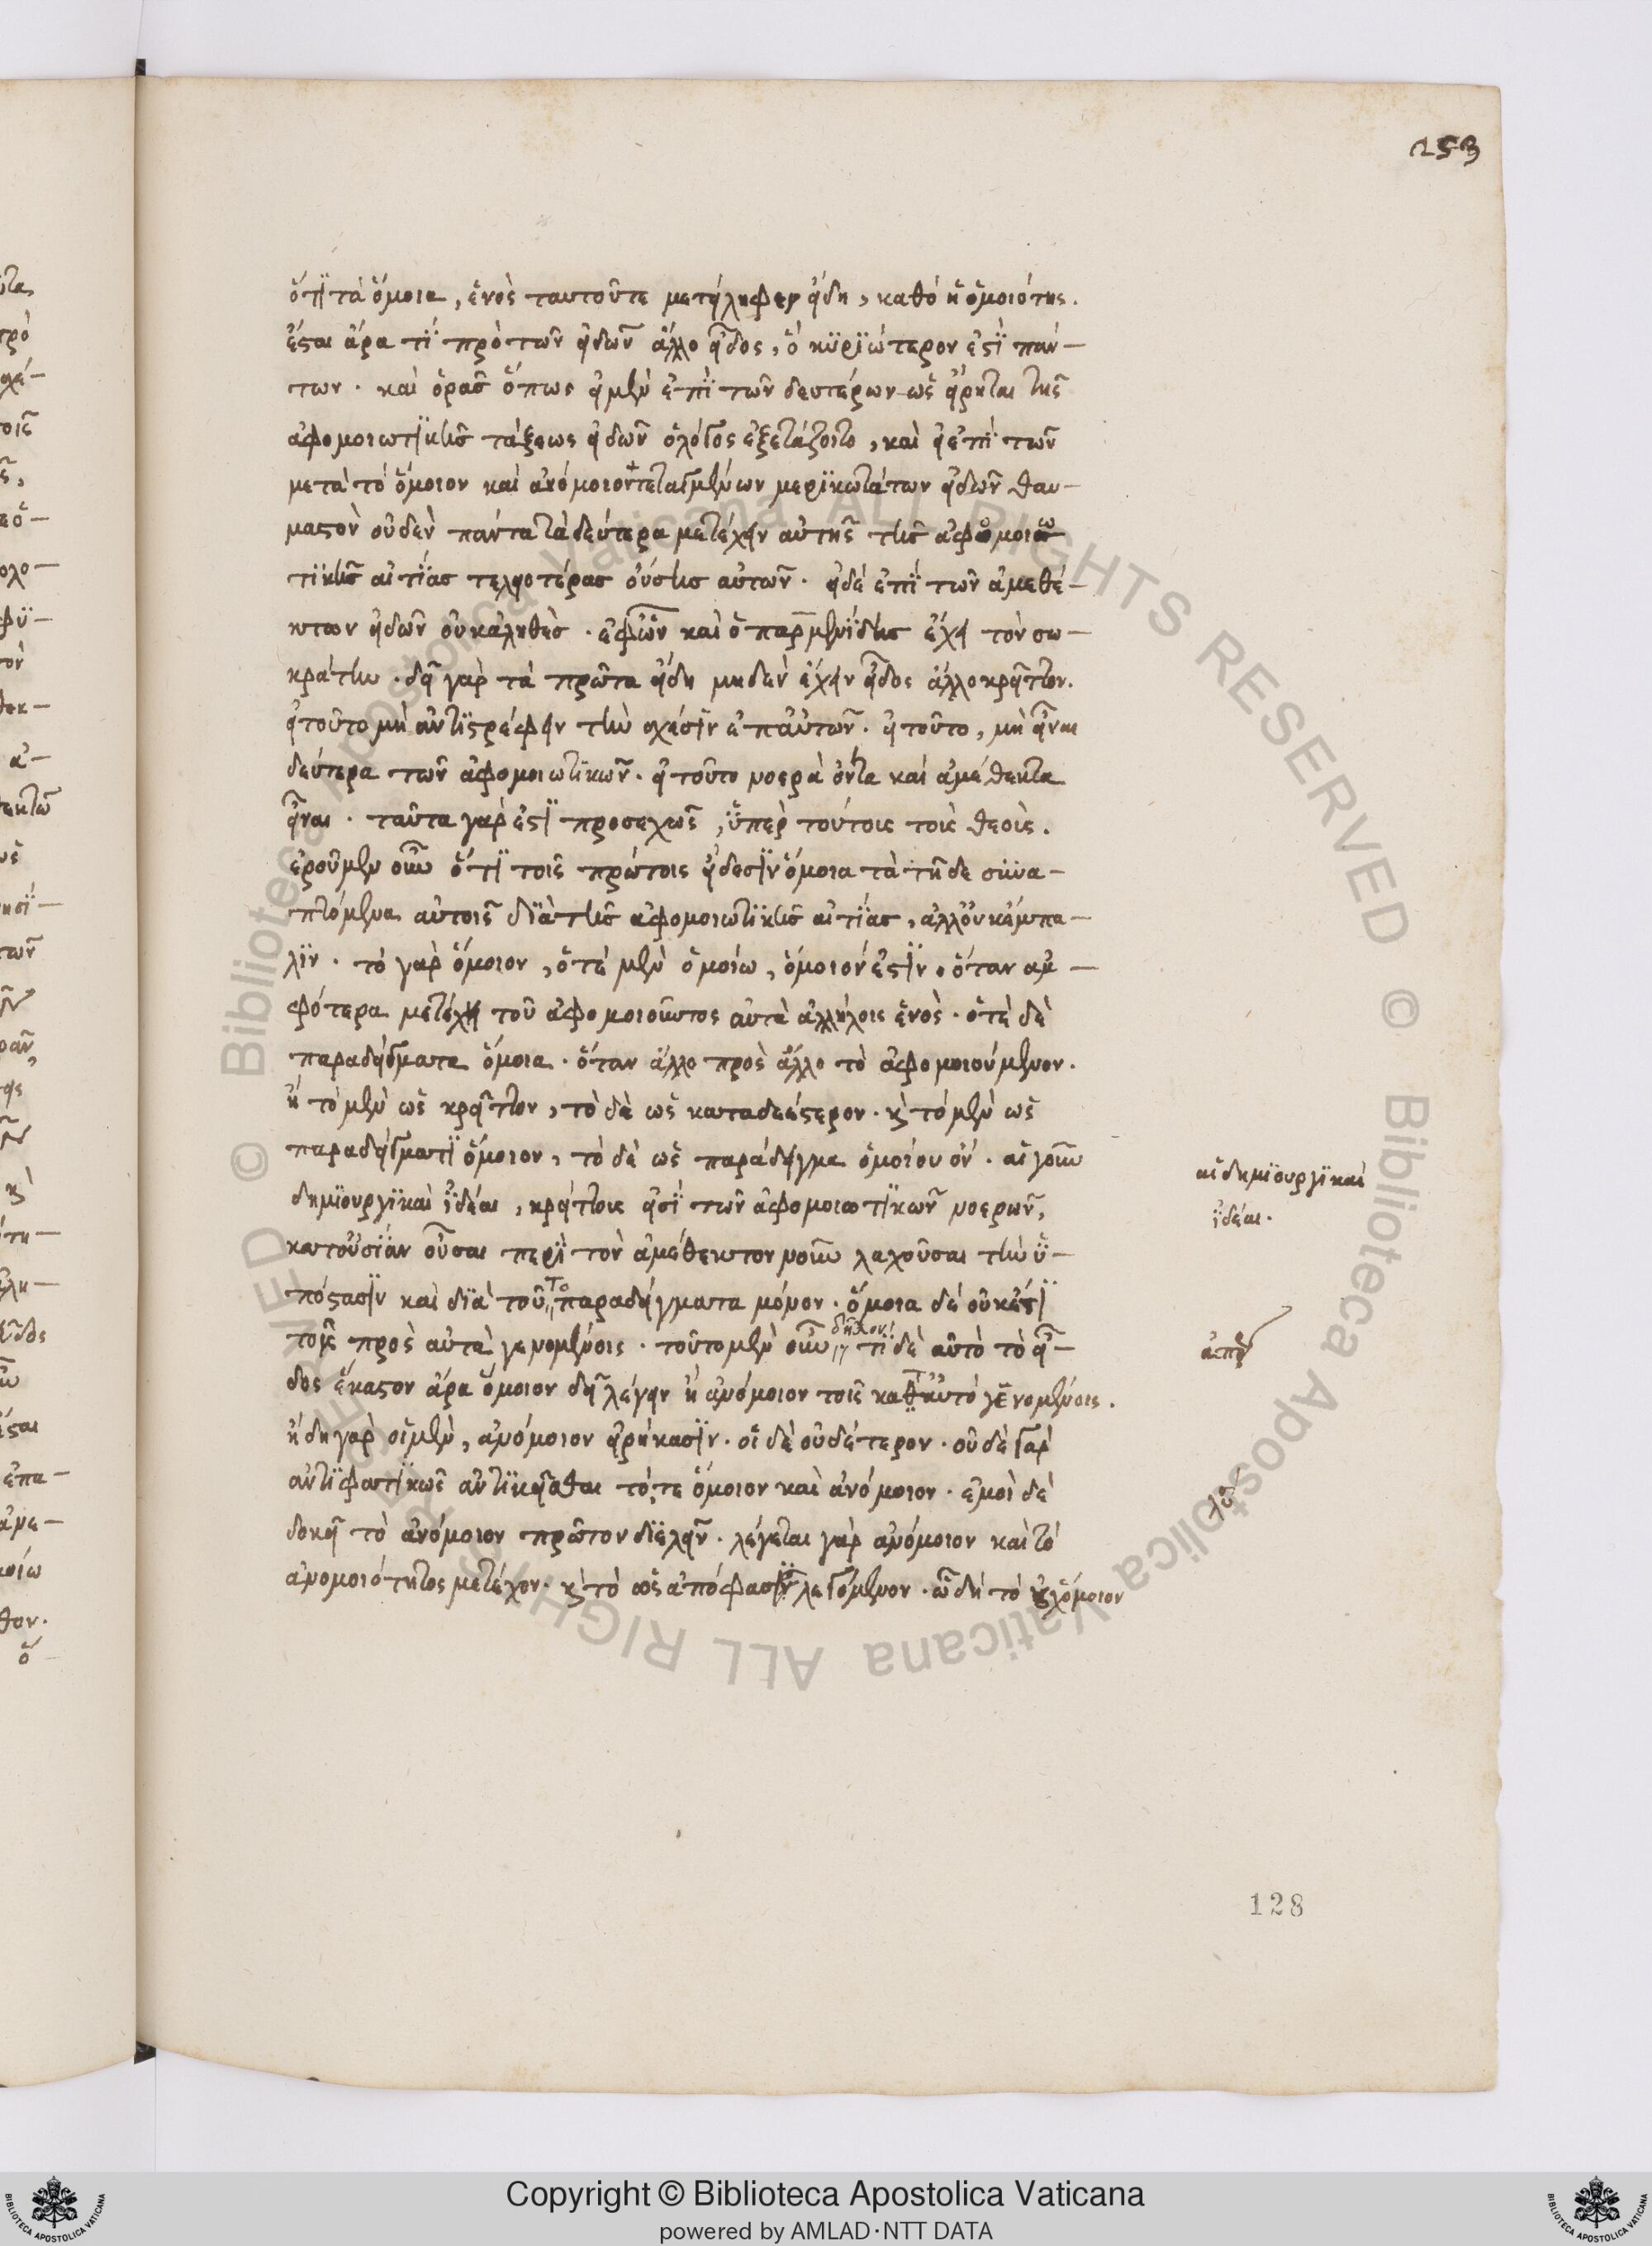 153
ὅτϊ τὰ ὅμοια, ἑνὸς ταυτοῦτε μετείληφεν εἴδη, καθό ἡ ὁμοιότης.
ἔσται ἄρα τϊ πρὸ τῶν εἰδῶν ἄλλο εἶδος, ὁ κϋρϊώτερον ἐστϊ παν-
των. καὶ ὁρᾶς ὅπως εἰ μὲν ἐπϊ τῶν δευτέρων ὡς εἴρηται τῆς
ἀφομοιωτϊκῆς τάξεως εἰδῶν ὁ λόγος ἐξετάζοιτο, καὶ εἰ ἐπϊ τῶν
μετὰ τὸ ὅμοιον καὶ ἀνόμοιον τεταγμένων μερϊκωτάτων εἰδῶν θαυ-
μαστὸν οὐδὲν πάντα τὰ δεύτερα μετέχειν αὐτῆς τῆς ἀφομοιω
τϊκῆς αἰτϊας τελειοτέρας οὔσης αὐτῶν. εἰ δὲ ἐπϊ τῶν ἀμεθέ-
κτων εἰδῶν οὐκ ἀληθὲς. ἐφ ὧν καὶ ὁ παρμενϊδης ἔχει τὸν σω-
κράτην. δεῖ γὰρ τὰ πρῶτα εἴδη μηδὲν ἔχειν εἶδος ἄλλο κρεῖττον.
εἰ τοῦτο μὴ ἀντϊστρέφειν τὴν σχέσϊν ἐπ αὐτῶν. εἰ τοῦτο, μὴ εἶναι
δεύτερα τῶν ἀφομοιωτϊκῶν. εἰ τοῦτο νοερὰ ὄντα καὶ ἀμέθεκτα
εἶναι. ταῦτα γὰρ ἐστϊ προσεχῶς, ὑπὲρ τούτοις τοῖς θεοῖς.
ἐροῦμεν οὖν ὅτϊ τοῖς πρώτοις εἴδεσϊν ὅμοια τὰ τῆδε σϋνα-
πτόμενα αὐτοῖς δϊὰ τῆς ἀφομοιωτϊκῆς αἰτϊας, ἀλλ οὐκ ἔμπα-
λϊν. τὸ γὰρ ὅμοιον, ὁτὲ μὲν ὁμοίω, ὅμοιον ἐστϊν. ὅταν ἀμ-
φότερα μετέχη τοῦ ἀφομοιοῦντος αὐτὰ ἀλλήλοις ἑνὸς. ὁτὲ δὲ
παραδείγματα ὅμοια. ὅταν ἄλλο πρὸς ἄλλο τὸ ἀφομοιούμενον.
ἢ τὸ μὲν ὡς κρεῖττον, τὸ δὲ ὡς καταδεέστερον. καὶ τὸ μὲν ὡς
παραδείγματϊ ὅμοιον, τὸ δὲ ὡς παράδειγμα ὁμοίου ὄν. αἱ γοῦν
δημϊουργϊκαὶ ἰδέαι, κρείττους εἰσϊ τῶν ἀφομοιωτϊκῶν νοερῶν,
κατ οὐσϊαν οὖσαι περϊ τὸν ἀμέθεκτον νοῦν λαχοῦσαι τὴν ὑ-
πόστασϊν καὶ δϊὰ τοῦτο παραδείγματα μόνον. ὅμοια δὲ οὐκέτϊ
τοῖς πρὸς αὐτὰ γενομένοις. τοῦτο μὲν οὖν δῆλον. τϊ δὲ αὐτὸ τὸ εἶ-
δος ἕκαστον ἄρα ὅμοιον δεῖ λέγειν ἢ ἀνόμοιον τοῖς κατ αὐτὸ γενομένοις.
ἤδη γὰρ οἱ μὲν, ἀνόμοιον εἰρήκασϊν. οἱ δὲ οὐδέτερον. οὐδὲ γὰρ
ἀντϊφατϊκῶς ἀντϊκεῖσθαι τό, τε ὅμοιον καὶ ἀνόμοιον. ἐμοὶ δὲ
δοκεῖ τὸ ἀνόμοιον πρῶτον δϊελεῖν. λέγεται γὰρ ἀνόμοιον καὶ τὸ
ἀνομοιότητος μετέχον. καὶ τὸ ὡς ἀπόφασϊν λεγόμενον. ὧ δὴ τὸ οὐχ ὅμοιον
αἱ δημϊουργϊκαὶ
ϊδέαι.
128